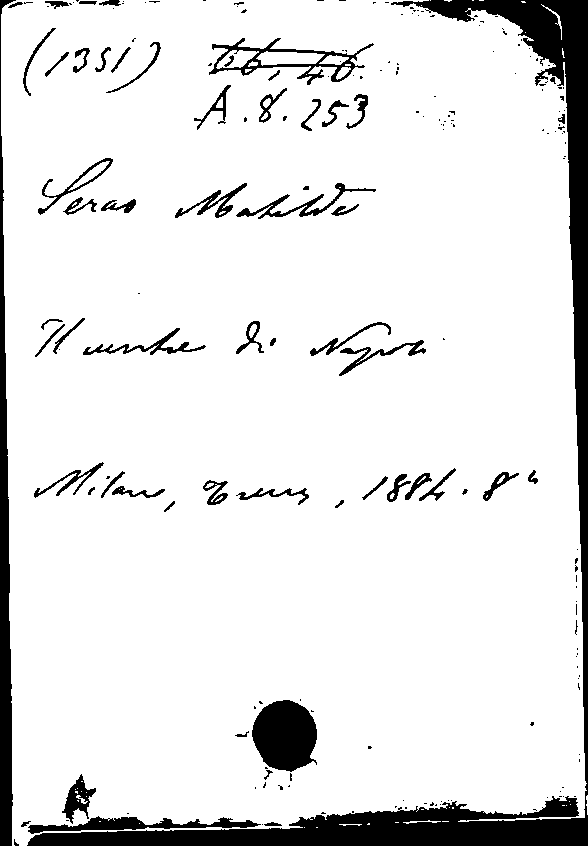 (1351) 66, 46.
A. 8. 253
Serao Matilde
Il ventre di Napoli
Milano, Treves, 1884. 8º